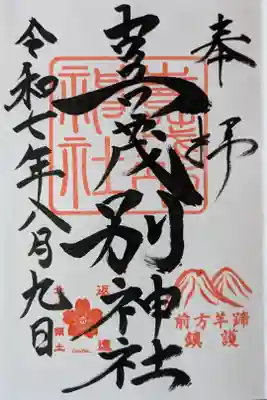 奉拝
喜茂別神社
令和七年八月九日
喜茂別神社
前方羊蹄
鎮護
北方領土
返還